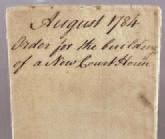 August 1784
Order for the building
of a New Court House